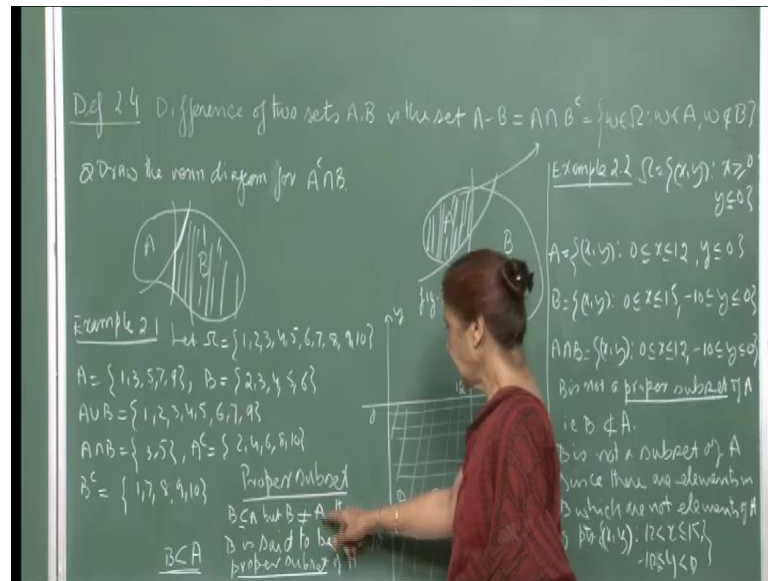 Def 2.4 Difference of two sets A,B is the set A-B = A∩Bᶜ = {ω∈Ω: ω∈A, ω∉B}
Q Draw the venn diagram for Aᶜ∩B.
A
B
A
B
fig
y
Example 2.1 Let Ω={1,2,3,4,5,6,7,8,9,10}
A = {1,3,5,7,9}, B = {2,3,4,5,6}
A∪B = {1,2,3,4,5,6,7,9}
A∩B = {3,5}, Aᶜ = {2,4,6,8,10}
Bᶜ = {1,7,8,9,10}
Proper subset
B⊆A but B≠A
B is said to be
proper subset of A
B⊂A
12
0
B
Example 2.2 Ω={(x,y): x≥0
y≤0}
A={(x,y): 0≤x≤12, y≤0}
B={(x,y): 0≤x≤15, -10≤y≤0}
A∩B={(x,y): 0≤x≤12, -10≤y≤0}
B is not a proper subset of A
ie B ⊄ A.
B is not a subset of A
Since there are elements in
B which are not elements of A
(x,y): 12<x≤15,
-10≤y≤0}